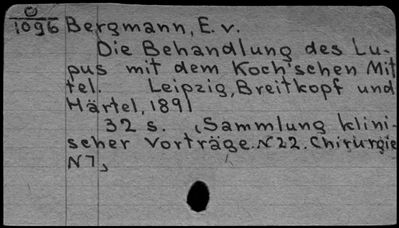 O
1096 Bergmann, E. v.
Die Behandlung des Lu-
pus mit dem Koch'schen Mit
tel. Leipzig, Breitkopf und
Härtel, 1891
32 s. (Sammlung klini-
scher Vorträge. N 22. Chirurgie
N 7)